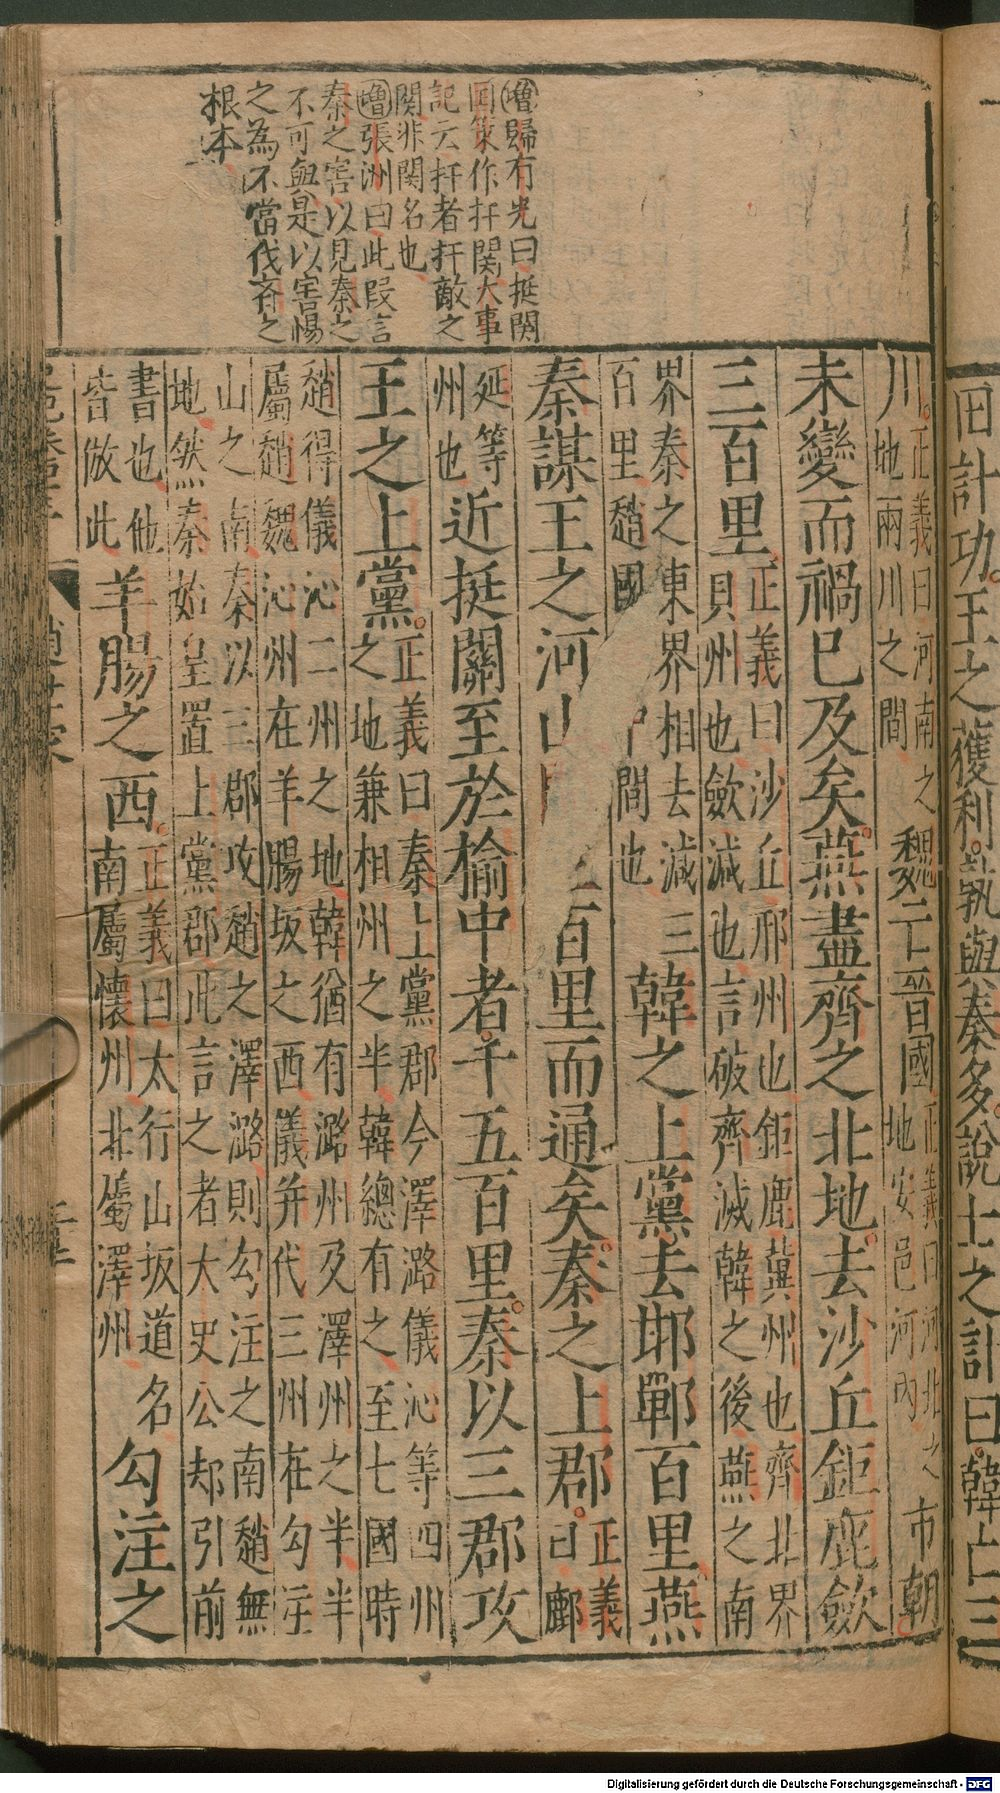 田計功王之獲利孰與秦多說士之計曰韓亡三
增歸有光曰挺関
囯策作扞関大事
記云扞者扞敵之
関非関名也
增張洲曰此段言
秦之害以見秦之
不可與是以害惕
之為不當伐斉之
根本
川。正義曰河南之地兩川之間魏亡晉國正義曰河北之地安邑河內市朝
未變而禍已及矣。燕盡齊之北地。去沙丘鉅鹿斂
三百里。正義曰沙丘邢州也鉅鹿冀州也齊北界貝州也斂減也言破齊滅韓之後燕之南
界秦之東界相去減三百里趙國間也韓之上黨。去邯鄲百里。燕
秦謀王之河山百里而通矣。秦之上郡。正義曰鄜
延等州也近挺關至於榆中者。千五百里。秦以三郡攻
王之上黨。正義曰秦上黨郡今澤潞儀沁等四州之地兼相州之半韓總有之至七國時
趙得儀沁二州之地韓猶有潞州及澤州之半半屬趙魏沁州在羊腸坂之西儀并代三州在勾注
山之南秦以三郡攻趙之澤潞則勾注之南趙無地然秦始皇置上黨郡此言之者大史公却引前
書也他皆倣此羊腸之西。正義曰太行山坂道名南屬懷州北屬澤州勾注之
Digitalisierung gefördert durch die Deutsche Forschungsgemeinschaft - DFG